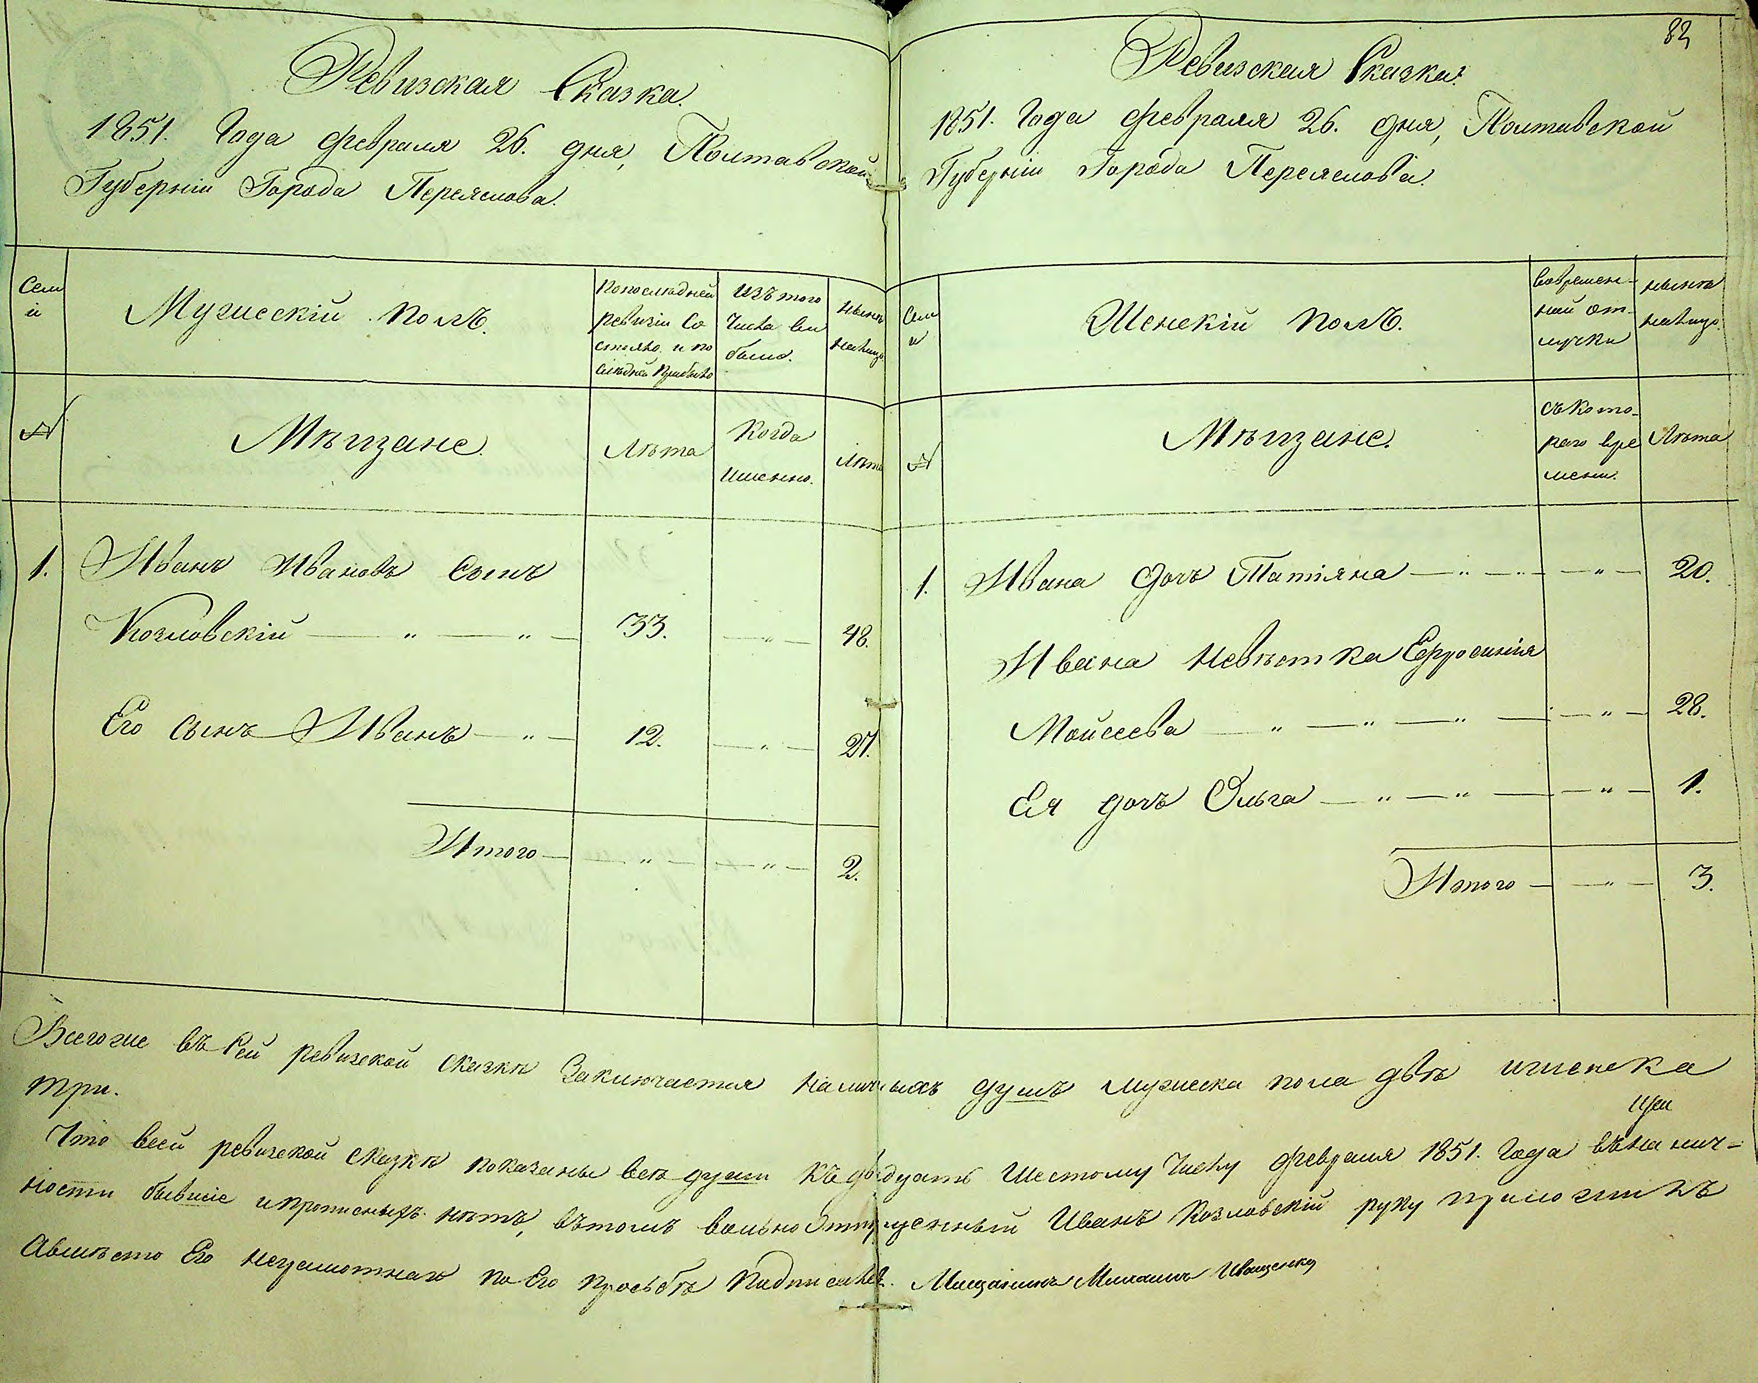 Ревизская Сказка.
1851. Года февраля 26. дня, Полтавской
Губерніи Города Переяслова.
Семи
Мужескій полъ.
По последней ревизіи со стояло и по следней прибыло
Изъ того числа вы было.
Ныне на лицо
№
Мѣщане.
Лѣта
Когда именно.
Лѣта
1. Иванъ Ивановъ сынъ
Козловскій — " — " — 33. — " — 48.
Его сынъ Иванъ — " — 12. — " — 27.
Итого — — " — — " — 2.
82
Ревизская Сказка.
1851. Года февраля 26. дня, Полтавской
Губерніи Города Переяслова.
Семи
Женскій полъ.
Вовремен-
ной от-
лучки
ныне
налицо.
№
Мѣщане.
съ кото-
раго вре
мени.
Лѣта
1. Ивана дочь Татіяна — " — — " — 20.
Ивана невѣстка Ефросинія
Моисеева — " — " — " — — " — 28.
Ея дочь Ольга — " — " — — " — 1.
Итого — — " — 3.
Всегоже въ сей ревизской сказкѣ заключается наличныхъ душъ мужеска пола двѣ и женска
три.
Что всей ревизской сказкѣ показаны всѣ души къ двадцать шестому числу февраля 1851. года въ налич-
ности бывшіе и прописныхъ нѣтъ, вътомъ вольно отпущенный Иванъ Козловскій руку приложилъ
авместо Его неграмотнаго по Его прозьбѣ подписалъ. Мещанинъ Михаилъ Иващенко